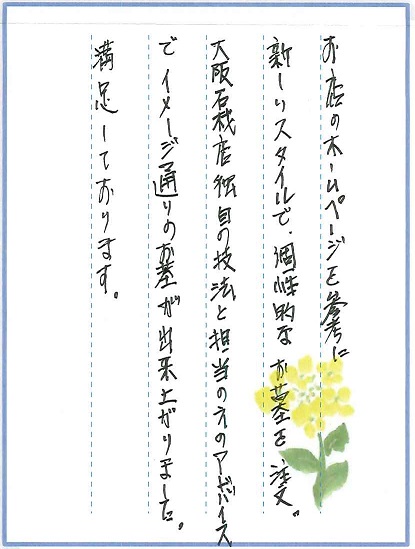 お店のホームページを参考に
新しいスタイルで、個性的なお墓を注文。
大阪石材店独自の技法と担当の方のアドバイス
でイメージ通りのお墓が出来上がりました。
満足しております。